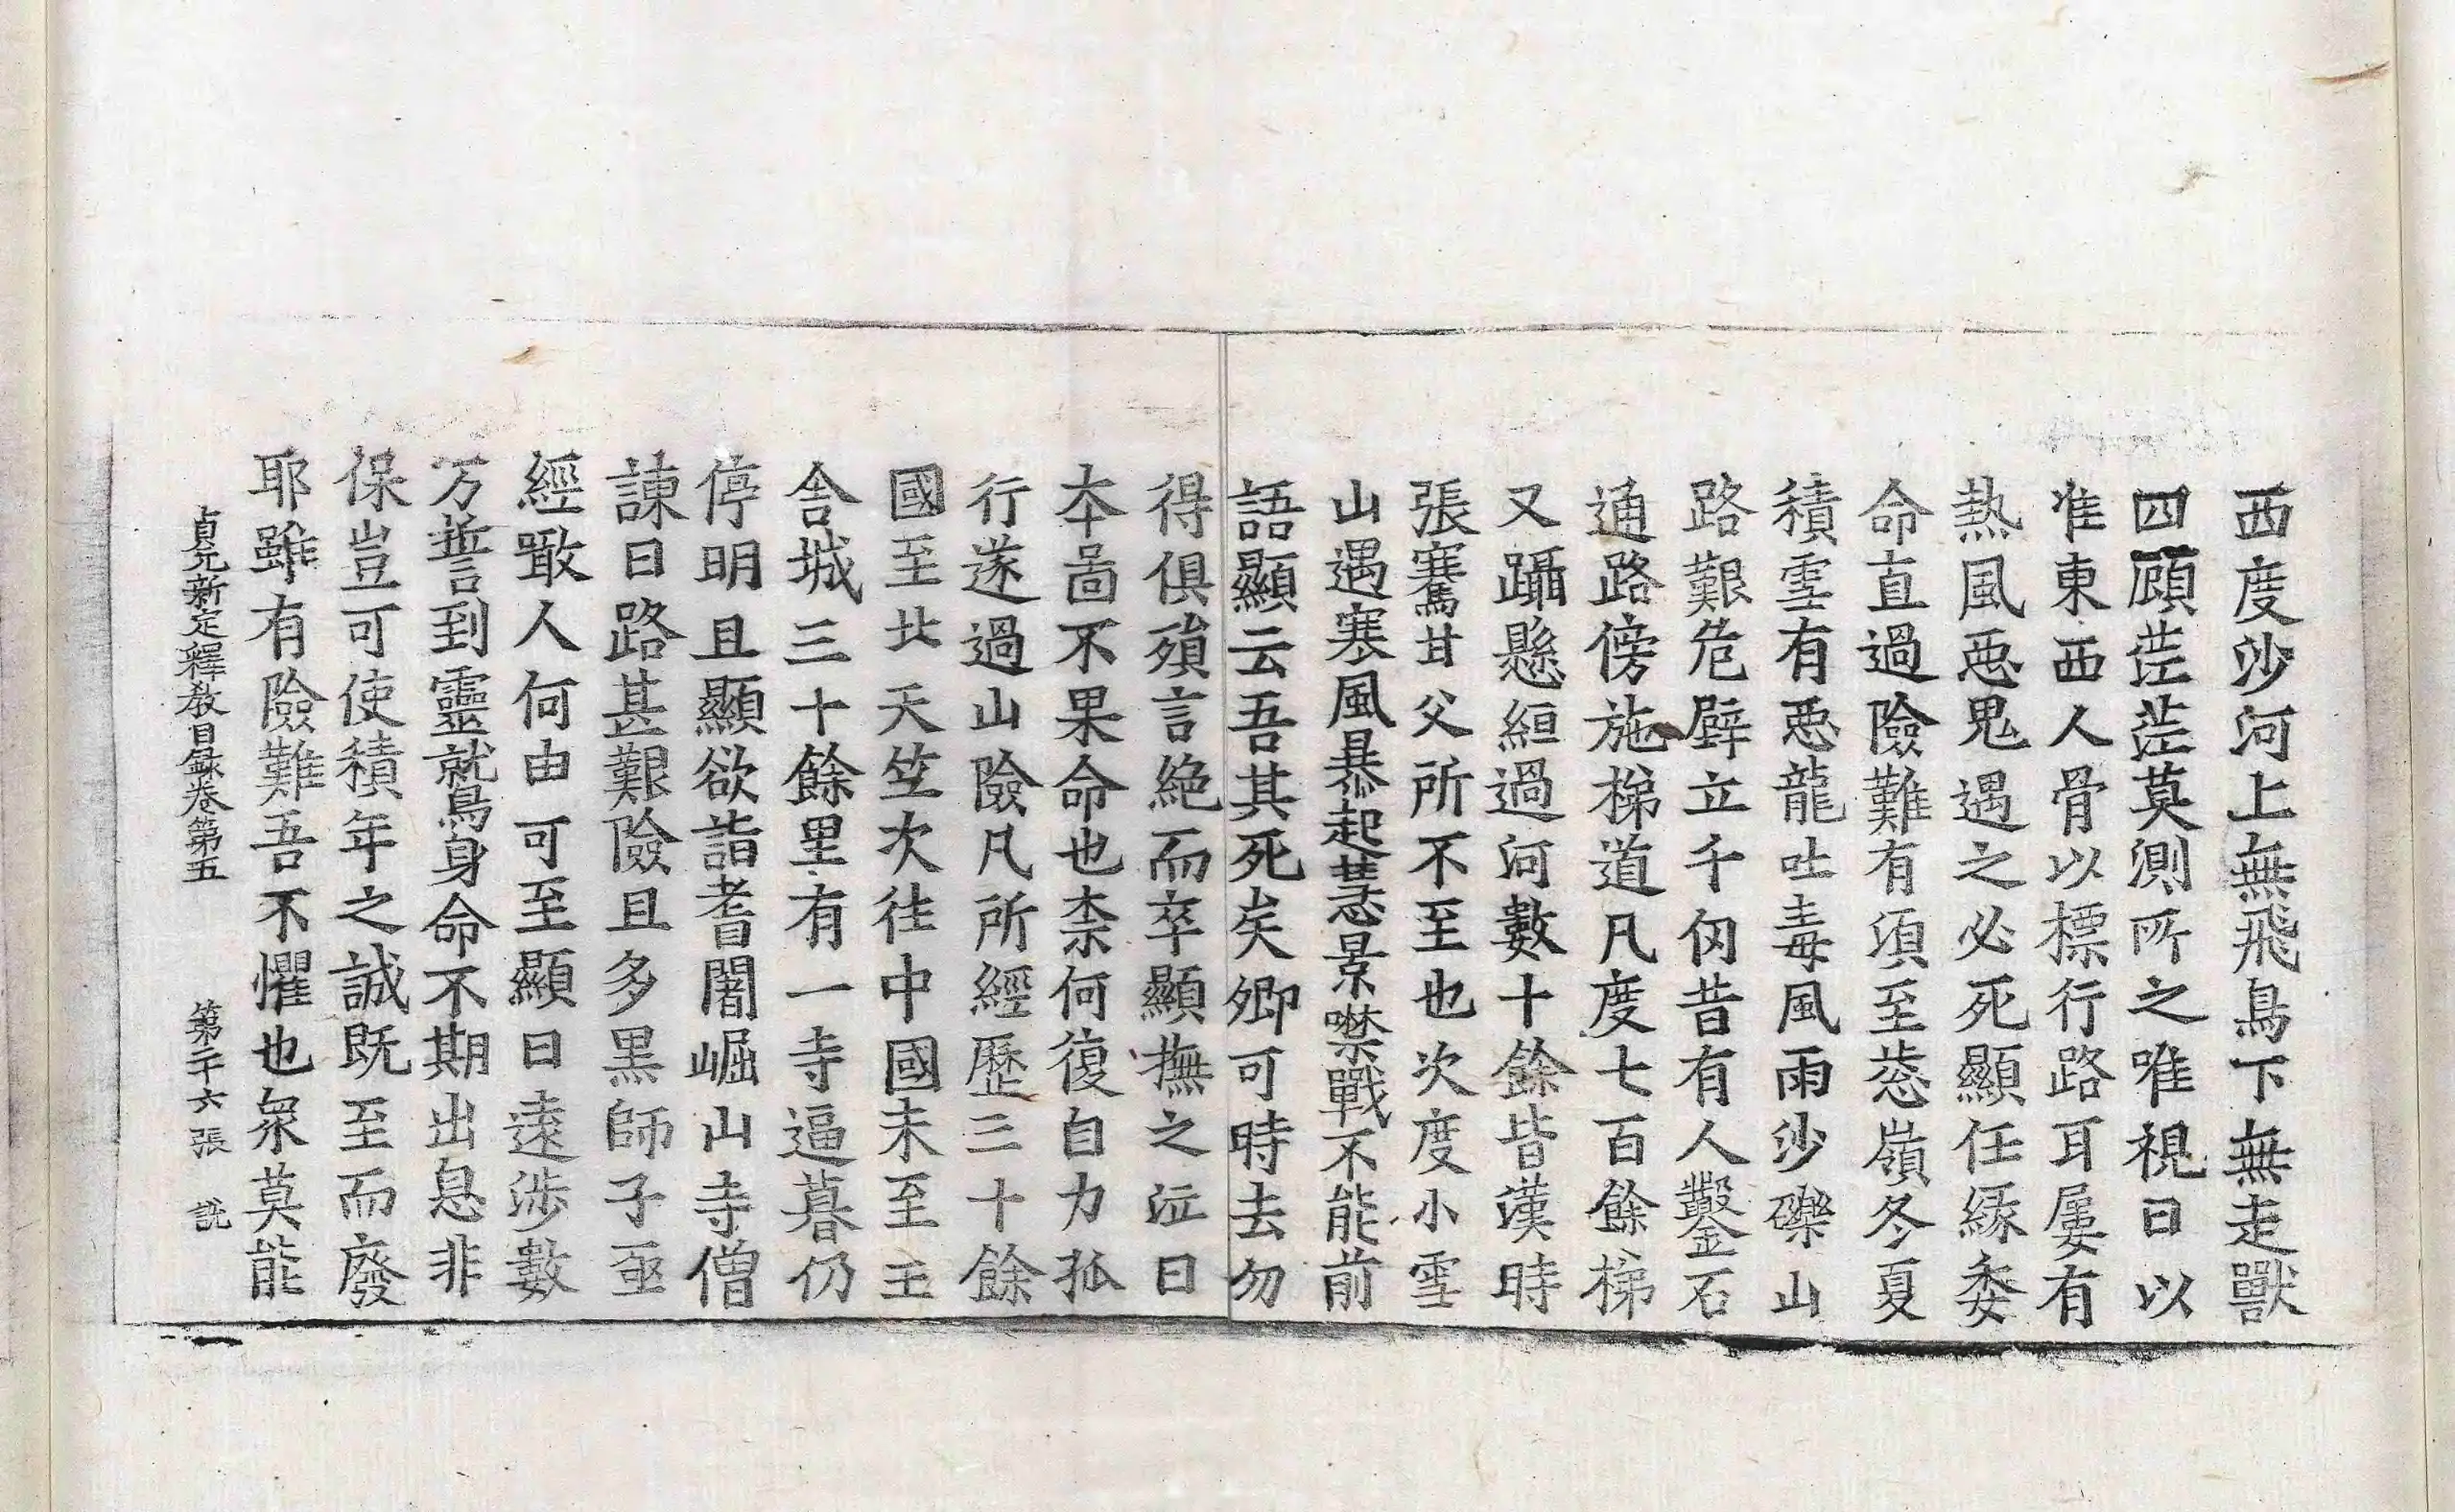 西度沙河上無飛鳥下無走獸
四顧茫茫莫測所之唯視日以
准東西人骨以標行路耳屢有
熱風惡鬼遇之必死顯任緣委
命直過險難有須至葱嶺冬夏
積雪有惡龍吐毒風雨沙礫山
路艱危壁立千仞昔有人鑿石
通路傍施梯道凡度七百餘梯
又躡懸絙過河數十餘皆漢時
張騫甘父所不至也次度小雪
山遇寒風暴起慧景噤戰不能前
語顯云吾其死矣卿可時去勿
得俱殞言絶而卒顯撫之泣曰
夲啚不果命也柰何復自力孤
行遂過山險凡所經歷三十餘
國至北天竺次徃中國未至王
舍城三十餘里有一寺逼暮仍
停明且顯欲詣耆闍崛山寺僧
諫曰路甚艱險且多黒師子亟
經噉人何由可至顯曰遠涉數
万誓到靈就鳥身命不期出息非
保豈可使積年之誠既至而廢
耶雖有險難吾不懼也衆莫能
貞元新定釋教目録卷第五 第二十六張 説